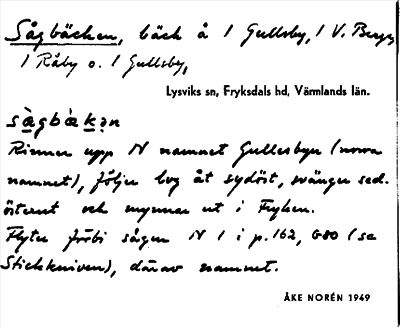 Sågbäcken, bäck å 1 Gullsby, 1 V. Berga,
1 Råby o. 1 Gullsby,
Lysviks sn, Fryksdals hd, Värmlands län.
Rinner upp N namnet Gullesbyn (norra
namnet), följer lvg åt sydöst, svänger sed.
österut och mynnar ut i Fryken.
Flyter förbi sågen N 1 i p. 162, G80 (se
Stickkniven), därav namnet.
ÅKE NORÉN 1949